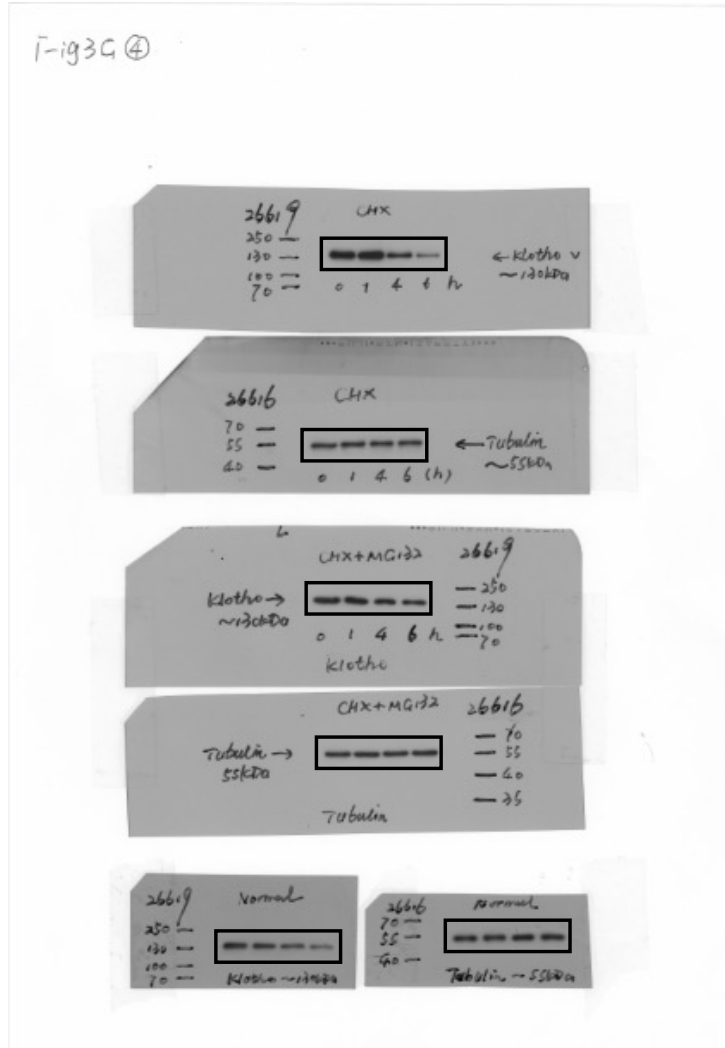 Fig3G ④
26619 CHX
250
130 ← Klotho
~130kDa
100
70 0 1 4 6 h
26616 CHX
70
55 ← Tubulin
~55kDa
40
0 1 4 6 (h)
CHX+MG132 26619
Klotho → 250
~130kDa 130
100
0 1 4 6 h 70
Klotho
CHX+MG132 26616
70
Tubulin → 55
55kDa 40
35
Tubulin
26619 Normal
250
130
100
70 Klotho ~130kDa
26616 Normal
70
55
40
Tubulin ~55kDa